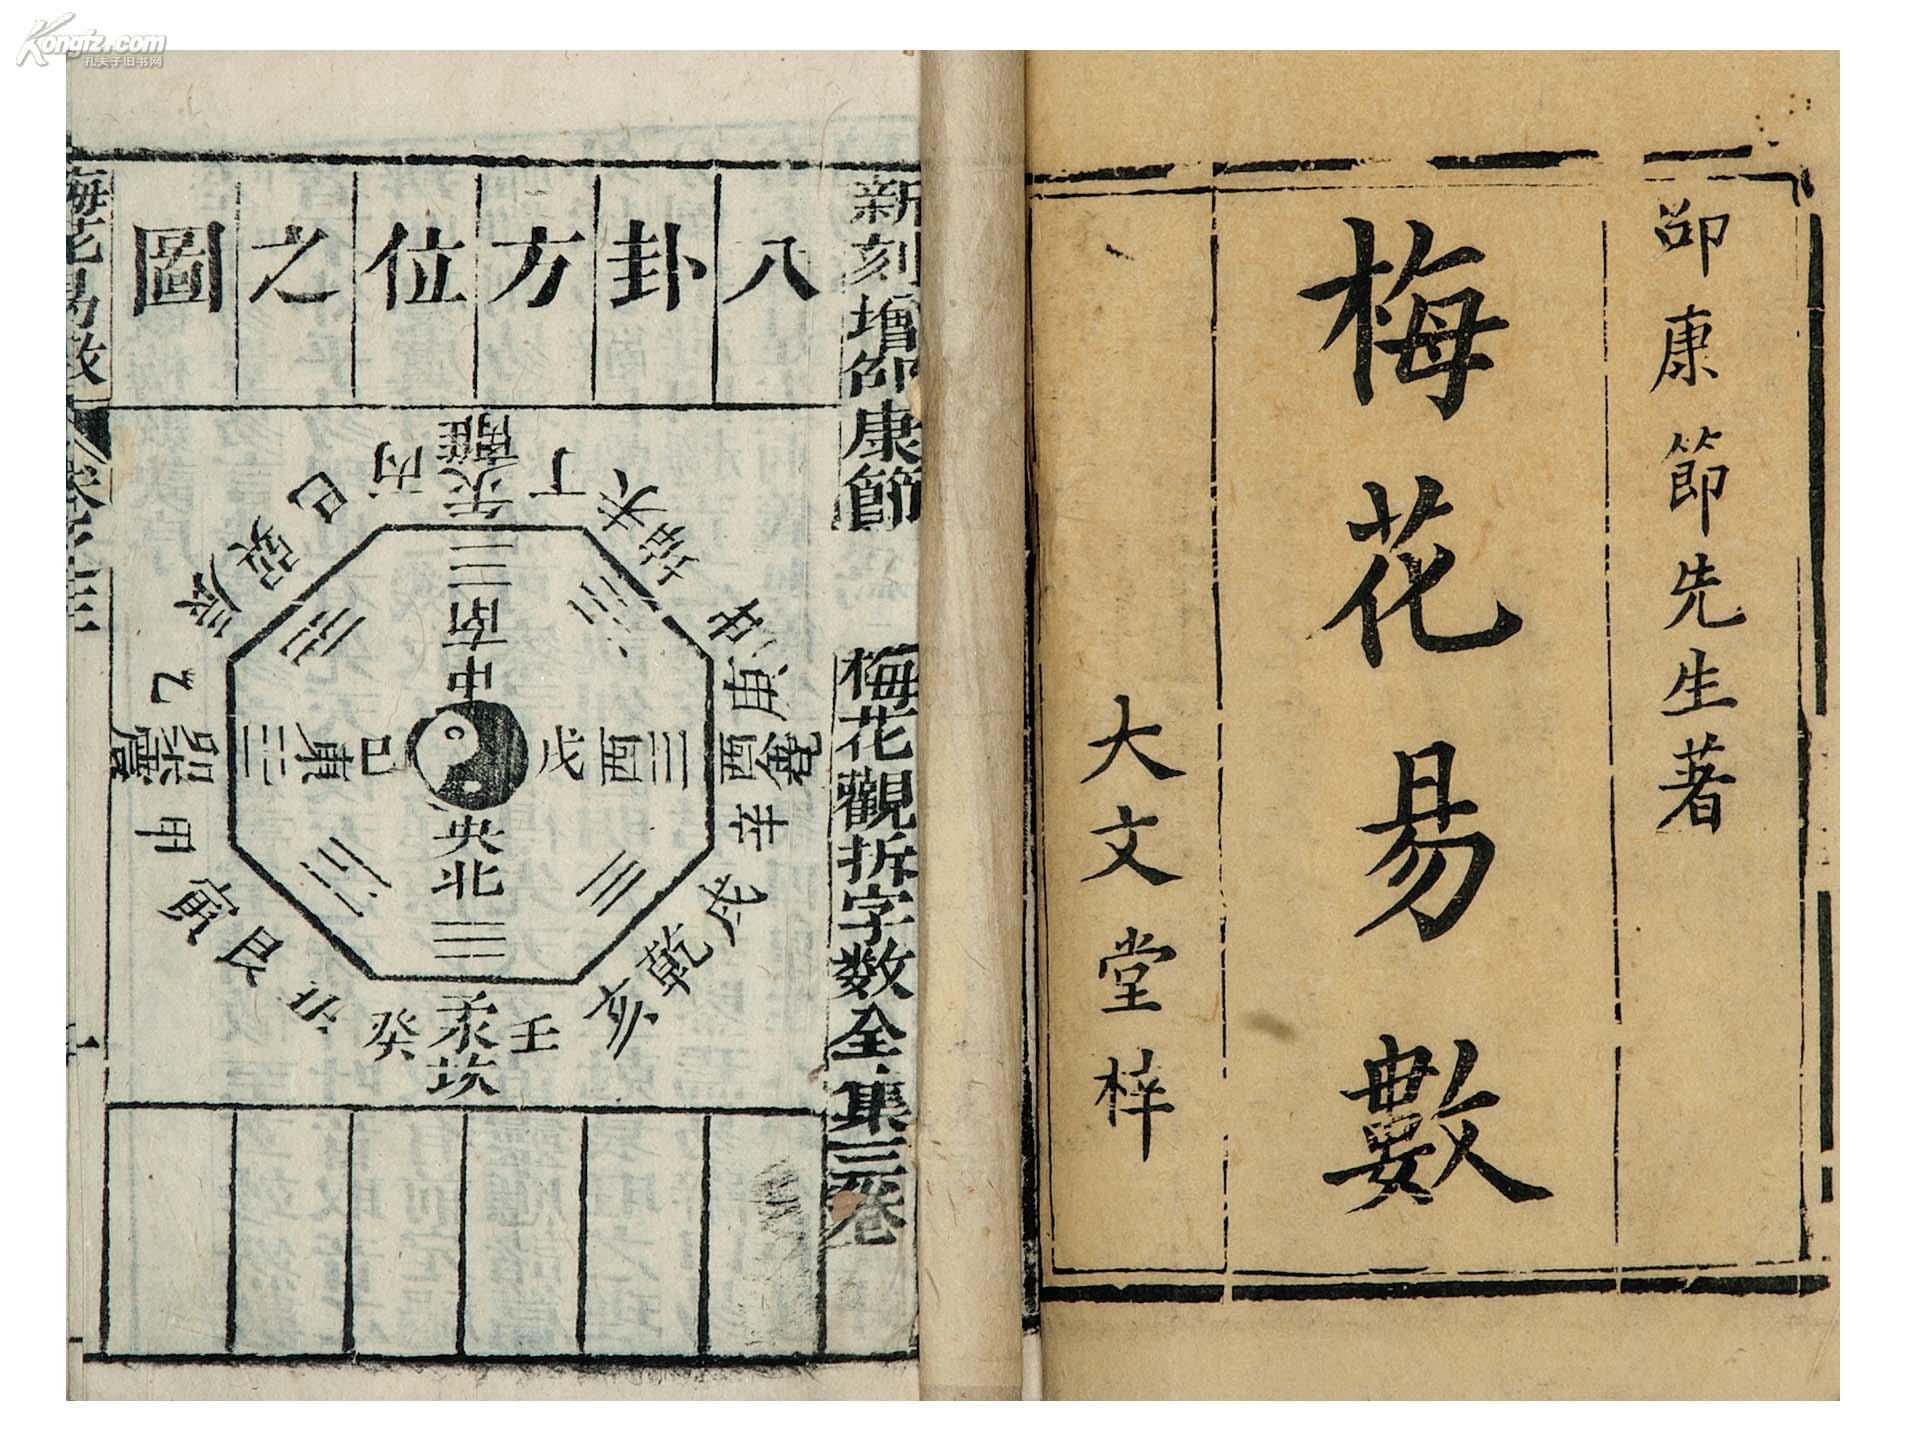 Kongfz.com
孔夫子旧书网
邵康節先生著
梅花易數
大文堂梓
新刻增邵康節
梅花觀拆字数全集三卷
八卦方位之圖
離
丙 午 丁
巳 未
巽 坤
辰 申
南
中
乙 庚
震 卯 東 戊 酉 兌
甲 辛
央
北
寅 戌
艮 乾
丑 亥
癸 子 壬
坎
梅花易数